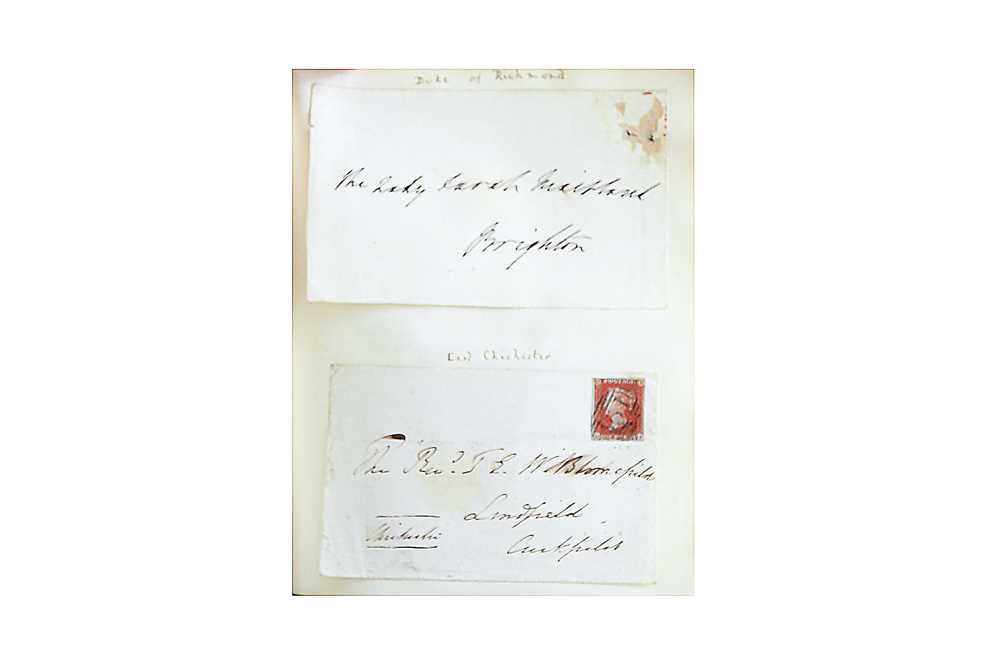 Duke of Richmond
The Lady Sarah Maitland
Brighton
Earl Chichester
POSTAGE
The Revd. T E. W Blomefield
Lindfield
Chichester
Cuckfield